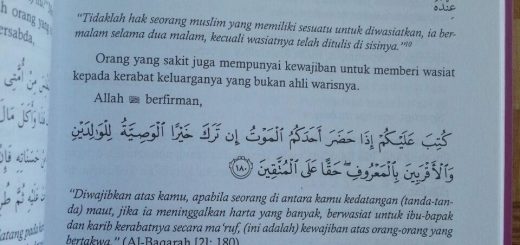 عِنْدَهُ
"Tidaklah hak seorang muslim yang memiliki sesuatu untuk diwasiatkan, ia ber-
malam selama dua malam, kecuali wasiatnya telah ditulis di sisinya."
Orang yang sakit juga mempunyai kewajiban untuk memberi wasiat
kepada kerabat keluarganya yang bukan ahli warisnya.
Allah ﷻ berfirman,
كُتِبَ عَلَيْكُمْ إِذَا حَضَرَ أَحَدَكُمُ الْمَوْتُ إِن تَرَكَ خَيْرًا الْوَصِيَّةُ لِلْوَالِدَيْنِ
وَالْأَقْرَبِينَ بِالْمَعْرُوفِ ۖ حَقًّا عَلَى الْمُتَّقِينَ ﴿١٨٠﴾
"Diwajibkan atas kamu, apabila seorang di antara kamu kedatangan (tanda-tan-
da) maut, jika ia meninggalkan harta yang banyak, berwasiat untuk ibu-bapak
dan karib kerabatnya secara ma'ruf, (ini adalah) kewajiban atas orang-orang yang
bertakwa." (Al-Baqarah [2]: 180)